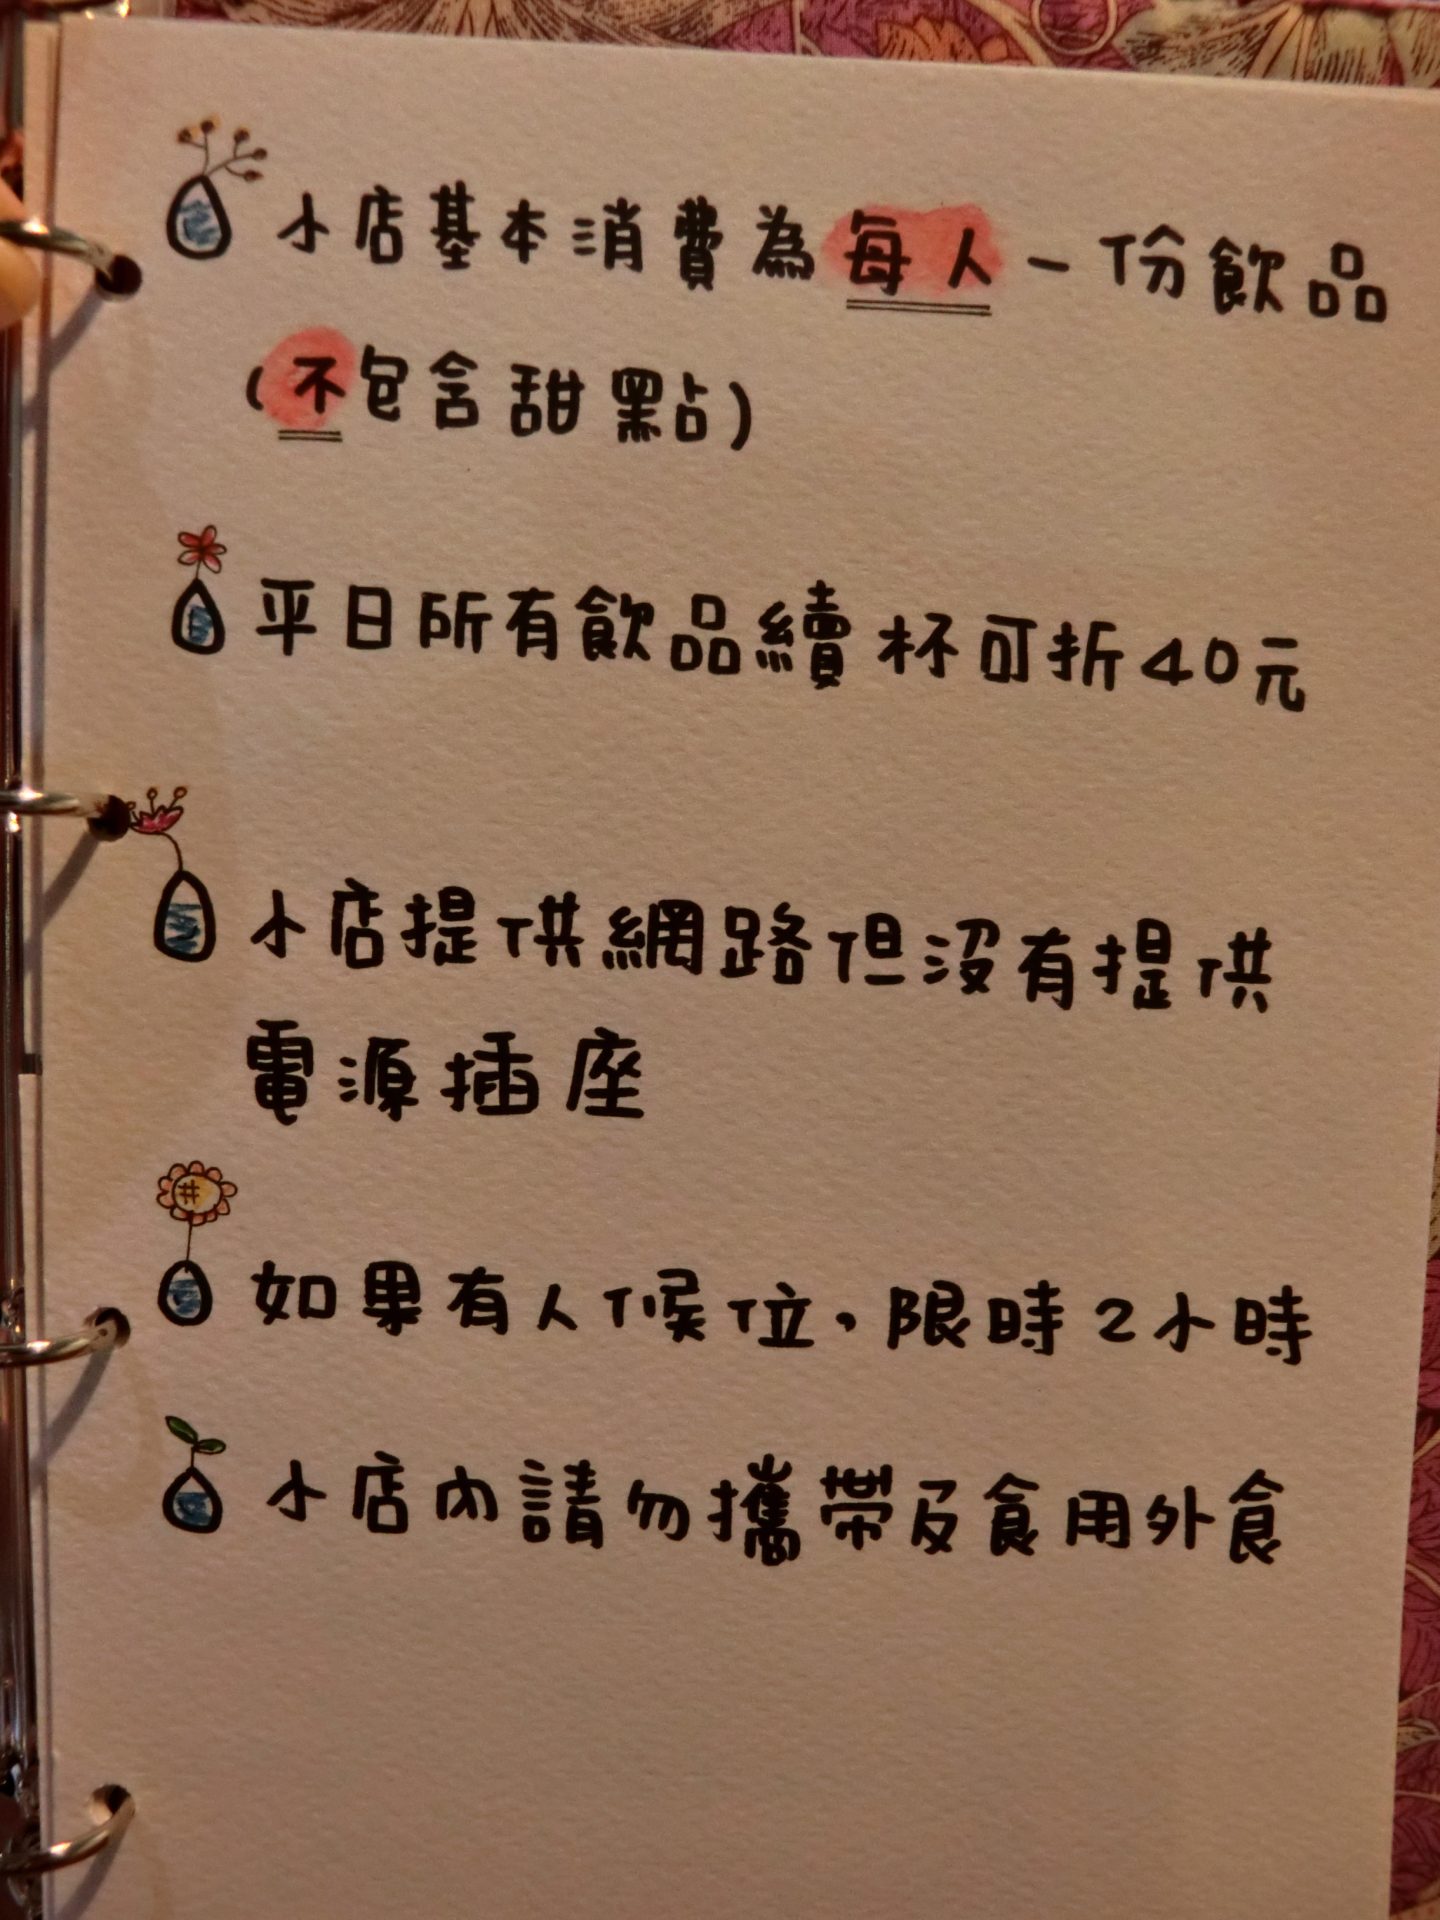 小店基本消費為每人一份飲品
(不包含甜點)
平日所有飲品續杯可折40元
小店提供網路但沒有提供
電源插座
如果有人候位，限時2小時
小店內請勿攜帶及食用外食